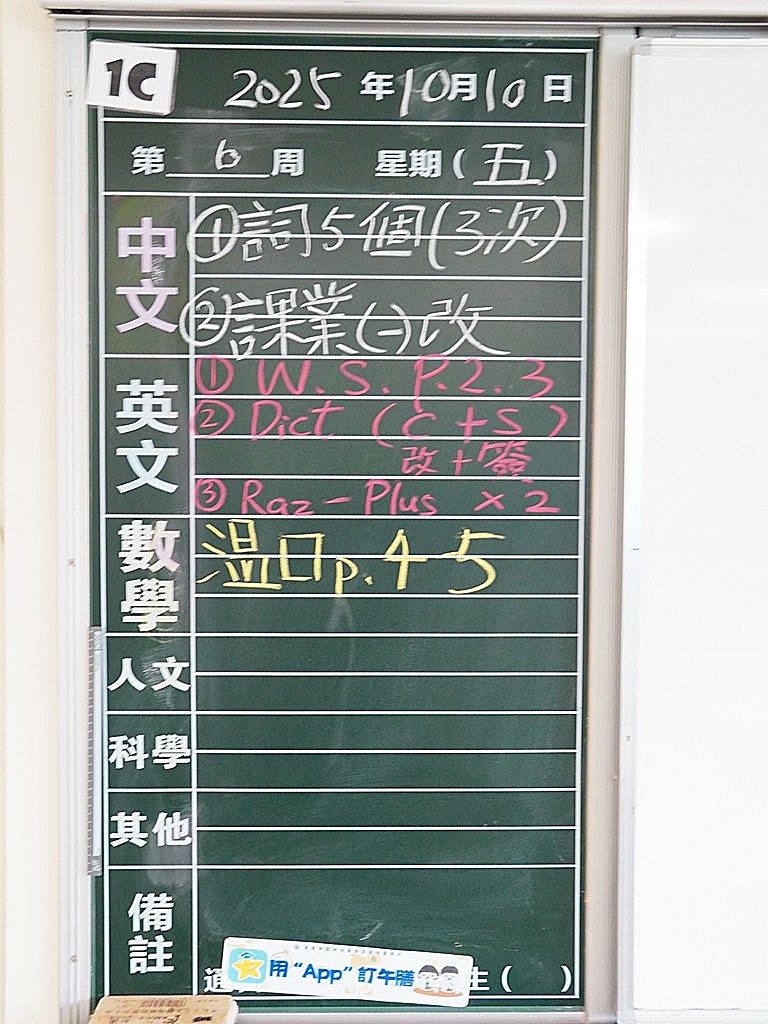 1C
2025年10月10日
第6周 星期(五)
中文
①詞5個(3次)
②課業(一)改
英文
① W.S. P.2.3
② Dict (C+S)
改+簽
③ Raz-Plus ×2
數學
溫口p.45
人文
科學
其他
備註
用“App”訂午膳
生( )